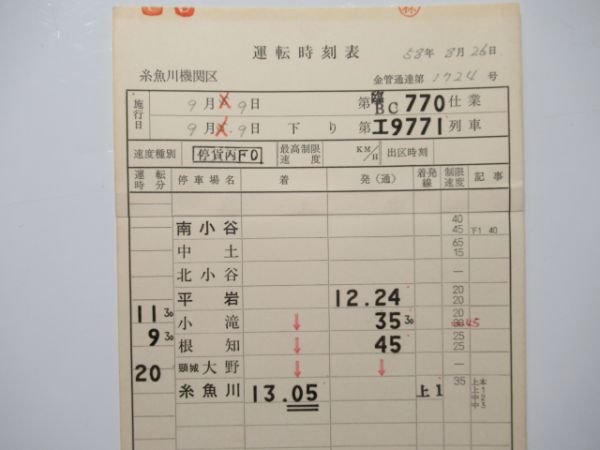 運転時刻表 58年8月26日
糸魚川機関区 金管通達第1724号
施行日 9月 9日 第臨BC770仕業
9月 9日 下り 第工9771列車
速度種別 停貨丙F0 最高制限速度 KM/H 出区時刻
運転時分 停車場名 着 発(通) 着発線 制限速度 記事
南小谷 40 45 下1 40
中土 65 15
北小谷 —
平岩 12.24 20 20
11 30 小滝 ↓ 35 30 20 45
9 30 根知 ↓ 45 25 25
20 頸城大野 ↓ ↓ —
糸魚川 13.05 上1 35 上本 上1 中2 中3